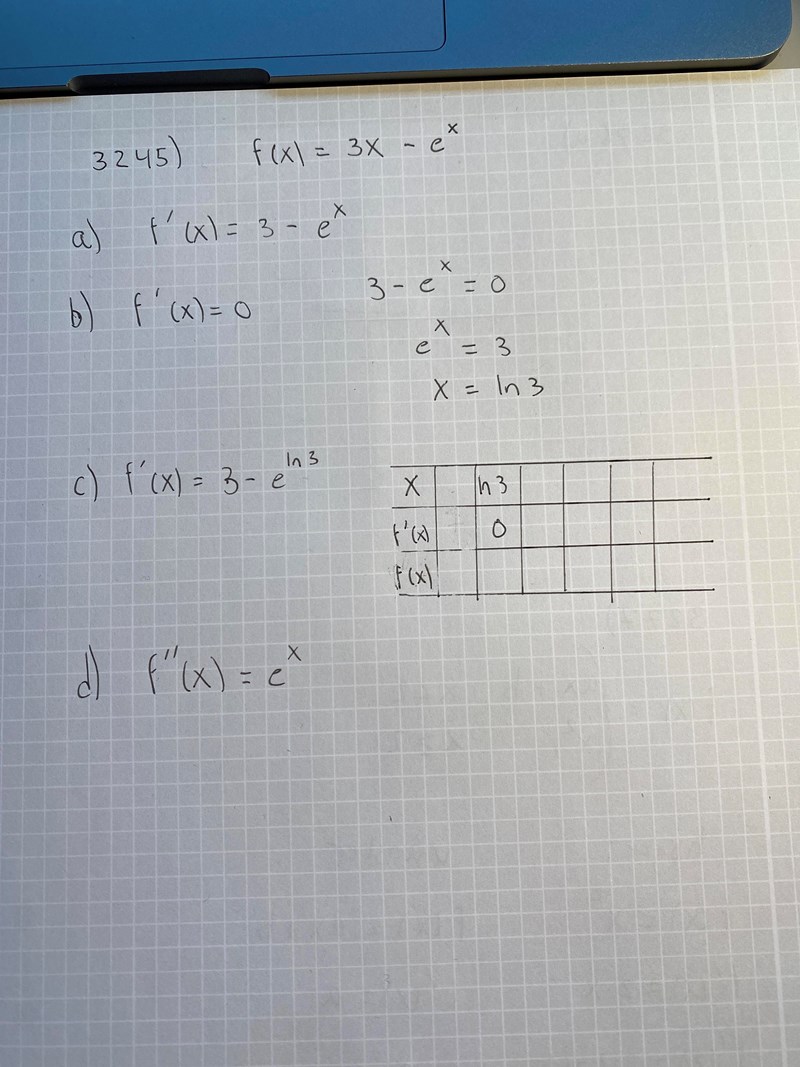 3245) f(x) = 3x - e^x
a) f'(x) = 3 - e^x
b) f'(x) = 0 3 - e^x = 0
e^x = 3
x = ln 3
c) f'(x) = 3 - e^ln 3
x ln 3
f'(x) 0
f(x)
d) f''(x) = e^x